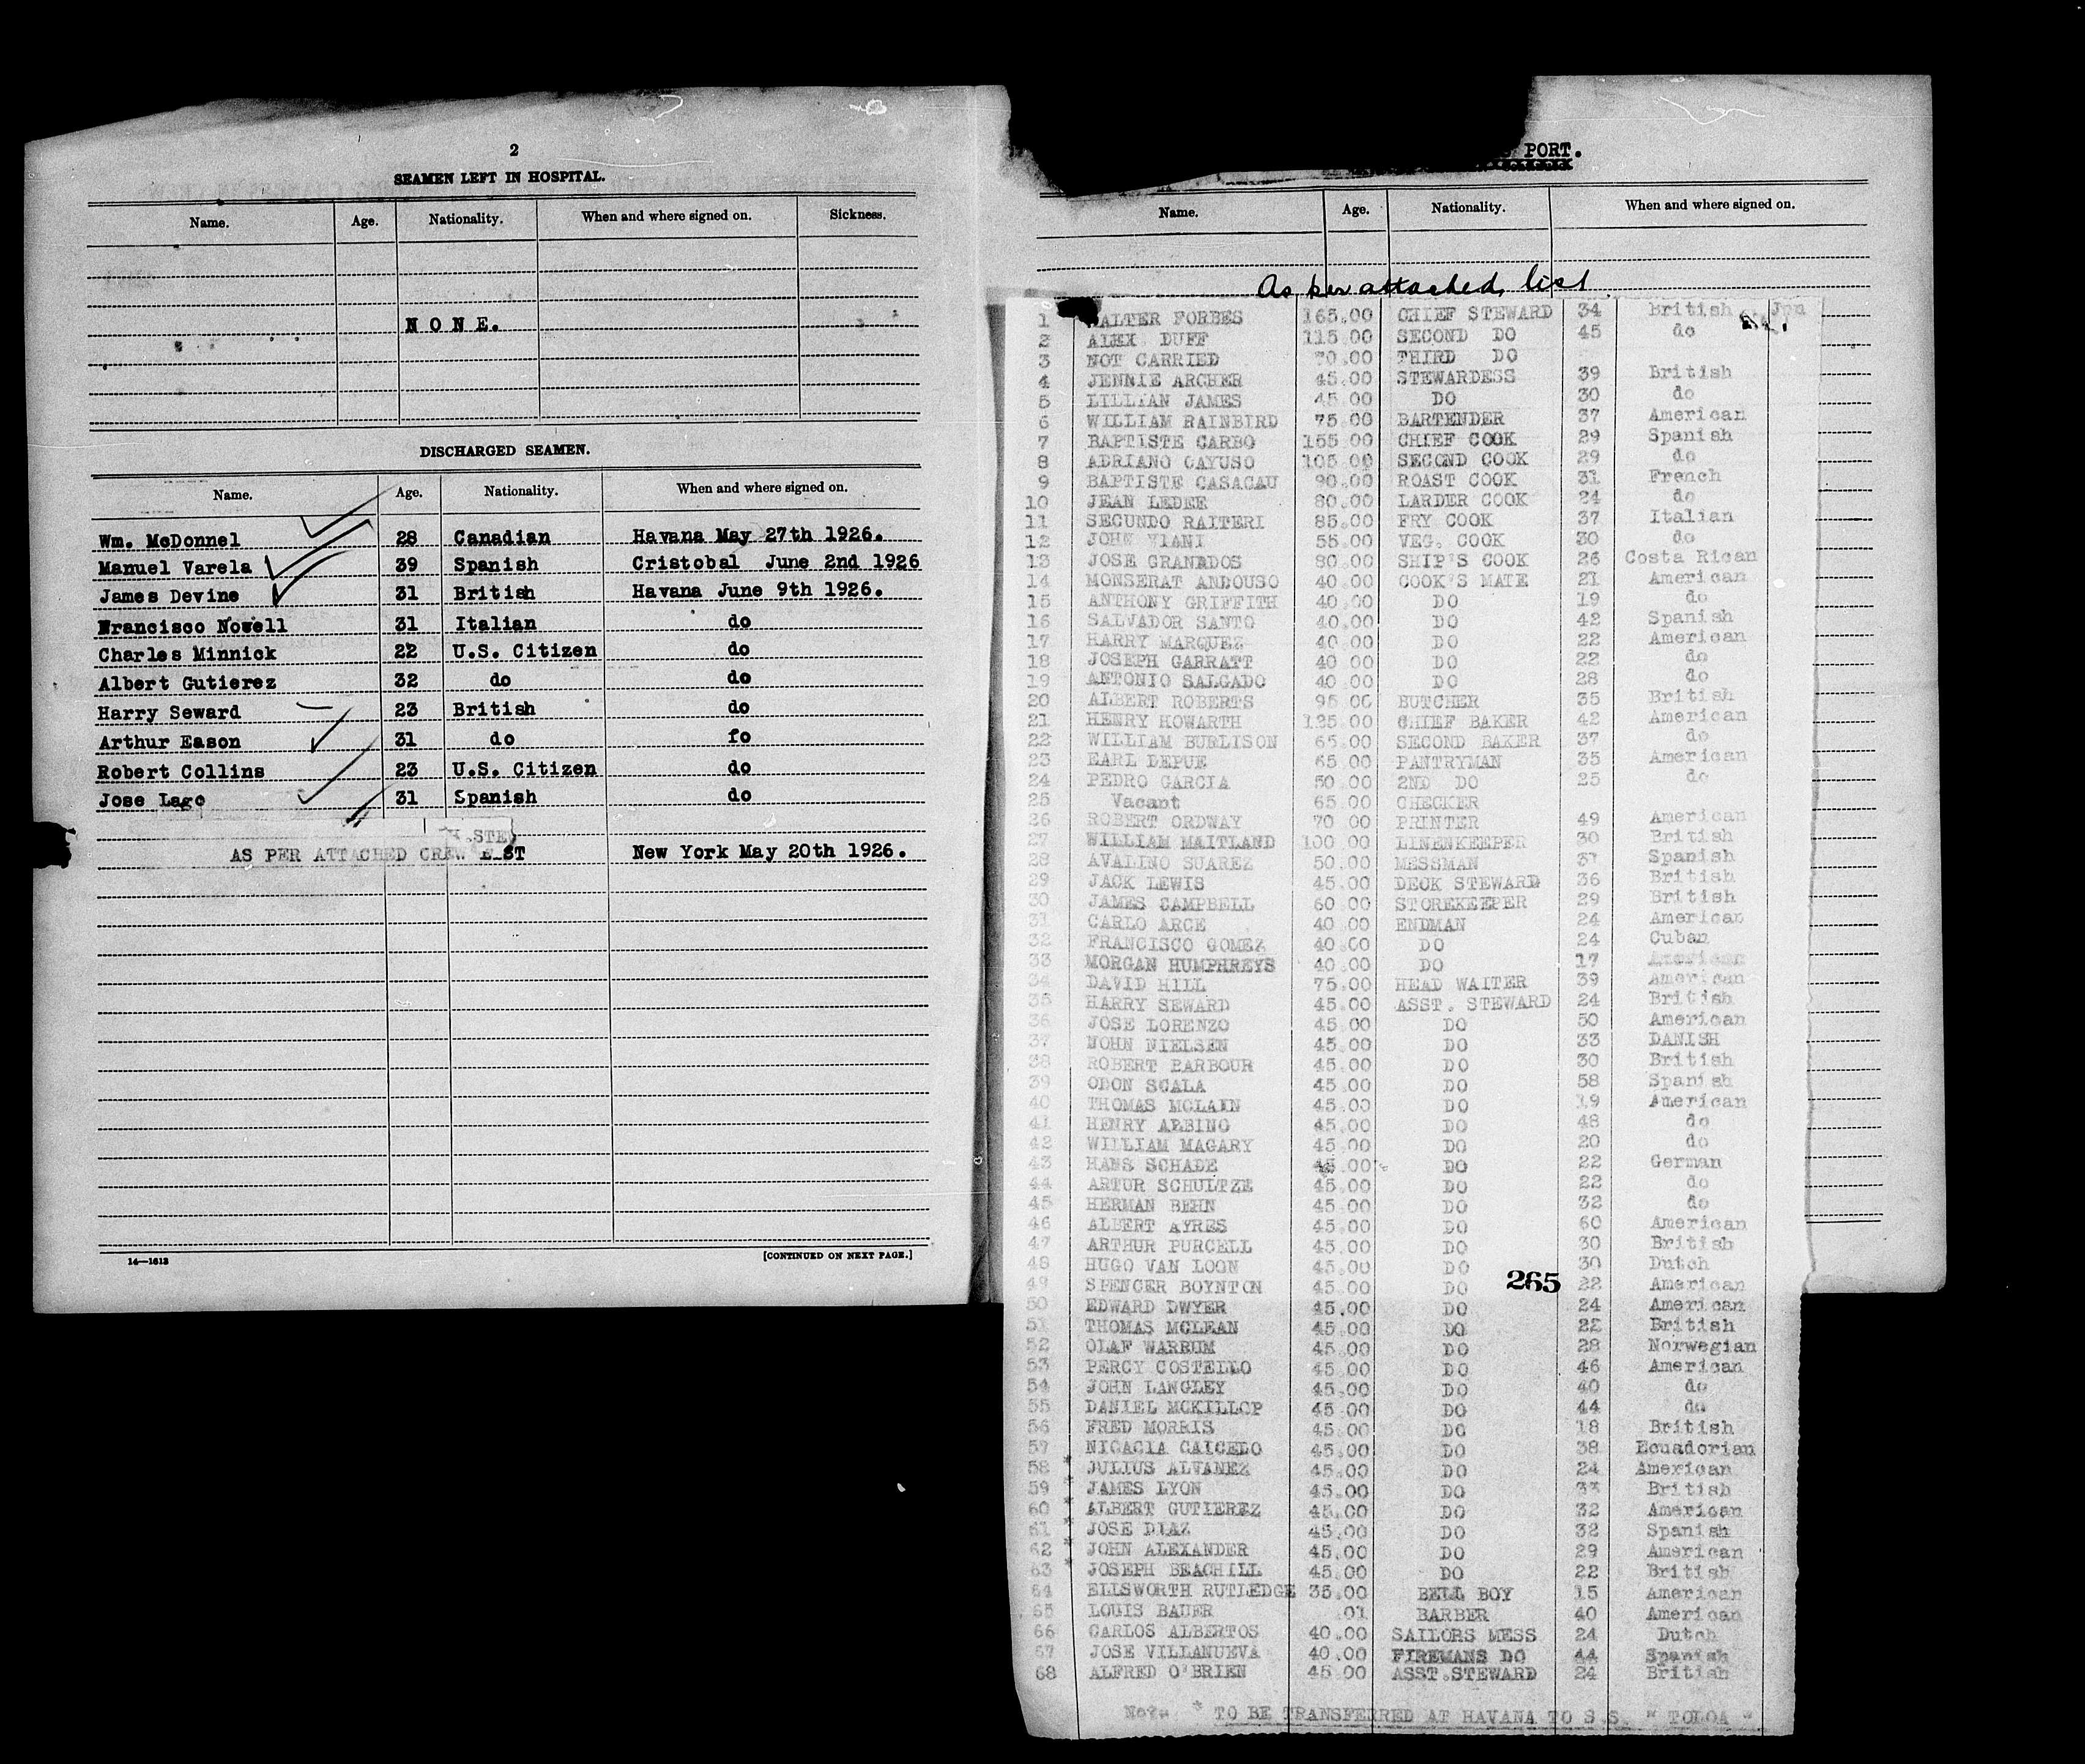 2
SEAMEN LEFT IN HOSPITAL.
Name. Age. Nationality. When and where signed on. Sickness.
NONE.
DISCHARGED SEAMEN.
Name. Age. Nationality. When and where signed on.
Wm. McDonnel 28 Canadian Havana May 27th 1926.
Manuel Varela 39 Spanish Cristobal June 2nd 1926
James Devine 31 British Havana June 9th 1926.
Francisco Nowell 31 Italian do
Charles Minnick 22 U.S. Citizen do
Albert Gutierez 32 do do
Harry Seward 23 British do
Arthur Eason 31 do fo
Robert Collins 23 U.S. Citizen do
Jose Lago 31 Spanish do
STE
AS PER ATTACHED CREW LIST New York May 20th 1926.
14—1613
[CONTINUED ON NEXT PAGE.]
PORT.
Name. Age. Nationality. When and where signed on.
As per attached list
1 WALTER FORBES 165.00 CHIEF STEWARD 34 British
2 ALEX DUFF 115.00 SECOND DO 45 do
3 NOT CARRIED 70.00 THIRD DO
4 JENNIE ARCHER 45.00 STEWARDESS 39 British
5 LILLIAN JAMES 45.00 DO 30 do
6 WILLIAM RAINBIRD 75.00 BARTENDER 37 American
7 BAPTISTE CARBO 155.00 CHIEF COOK 29 Spanish
8 ADRIANO CAYUSO 105.00 SECOND COOK 29 do
9 BAPTISTE CASACAU 90.00 ROAST COOK 31 French
10 JEAN LEDEE 80.00 LARDER COOK 24 do
11 SECUNDO RAITERI 85.00 FRY COOK 37 Italian
12 JOHN VIANI 55.00 VEG. COOK 30 do
13 JOSE GRANADOS 80.00 SHIP'S COOK 26 Costa Rican
14 MONSERAT ANDOUSO 40.00 COOK'S MATE 21 American
15 ANTHONY GRIFFITH 40.00 DO 19 do
16 SALVADOR SANTO 40.00 DO 42 Spanish
17 HARRY MARQUEZ 40.00 DO 22 American
18 JOSEPH GARRATT 40 00 DO 22 do
19 ANTONIO SALGADO 40.00 DO 28 do
20 ALBERT ROBERTS 95 00 BUTCHER 35 British
21 HENRY HOWARTH 125.00 CHIEF BAKER 42 American
22 WILLIAM BURLISON 65.00 SECOND BAKER 37 do
23 EARL DEPUE 65.00 PANTRYMAN 35 American
24 PEDRO GARCIA 50.00 2ND DO 25 do
25 Vacant 65.00 CHECKER
26 ROBERT ORDWAY 70 00 PRINTER 49 American
27 WILLIAM MAITLAND 100 00 LINENKEEPER 30 British
28 AVALINO SUAREZ 50.00 MESSMAN 37 Spanish
29 JACK LEWIS 45.00 DECK STEWARD 36 British
30 JAMES CAMPBELL 60.00 STOREKEEPER 29 British
31 CARLO ARCE 40.00 ENDMAN 24 American
32 FRANCISCO GOMEZ 40.00 DO 24 Cuban
33 MORGAN HUMPHREYS 40.00 DO 17
34 DAVID HILL 75.00 HEAD WAITER 39 American
35 HARRY SEWARD 45.00 ASST. STEWARD 24 British
36 JOSE LORENZO 45.00 DO 50 American
37 NOHN NIELSEN 45.00 DO 33 DANISH
38 ROBERT BARBOUR 45.00 DO 30 British
39 ODON SCALA 45.00 DO 58 Spanish
40 THOMAS MCLAIN 45.00 DO 19 American
41 HENRY ALBINO 45.00 DO 48 do
42 WILLIAM MAGARY 45.00 DO 20 do
43 HANS SCHADE 45.00 DO 22 German
44 ARTUR SCHULTZE 45.00 DO 22 do
45 HERMAN BEHN 45.00 DO 32 do
46 ALBERT AYRES 45.00 DO 60 American
47 ARTHUR PURCELL 45.00 DO 30 British
48 HUGO VAN LOON 45.00 DO 30 Dutch
49 SPENCER BOYNTON 45.00 DO 22 American
265
50 EDWARD DWYER 45.00 DO 24 American
51 THOMAS MCLEAN 45.00 DO 22 British
52 OLAF WARRUM 45.00 DO 28 Norwegian
53 PERCY COSTELLO 45.00 DO 46 American
54 JOHN LANGLEY 45.00 DO 40 do
55 DANIEL MCKILLOP 45 00 DO 44 do
56 FRED MORRIS 45.00 DO 18 British
57 NICACIA CAICEDO 45.00 DO 38 Ecuadorian
58 * JULIUS ALVANEZ 45.00 DO 24 American
59 * JAMES LYON 45.00 DO 33 British
60 * ALBERT GUTIEREZ 45.00 DO 32 American
61 * JOSE DIAZ 45.00 DO 32 Spanish
62 * JOHN ALEXANDER 45.00 DO 29 American
63 * JOSEPH BEACHILL 45.00 DO 22 British
64 ELLSWORTH RUTLEDGE 35.00 BELL BOY 15 American
65 LOUIS BAUER .01 BARBER 40 American
66 CARLOS ALBERTOS 40.00 SAILORS MESS 24 Dutch
67 JOSE VILLANUEVA 40.00 FIREMANS DO 44 Spanish
68 ALFRED O'BRIEN 45 00 ASST.STEWARD 24 British
Note * TO BE TRANSFERRED AT HAVANA TO S.S. " TOLOA "